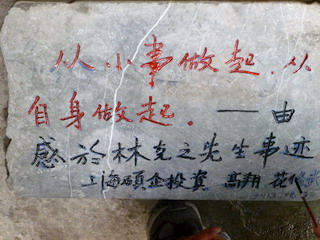 从小事做起.从
自身做起. ——由
感於林克之先生事迹
上海硕企投資 高翔 花